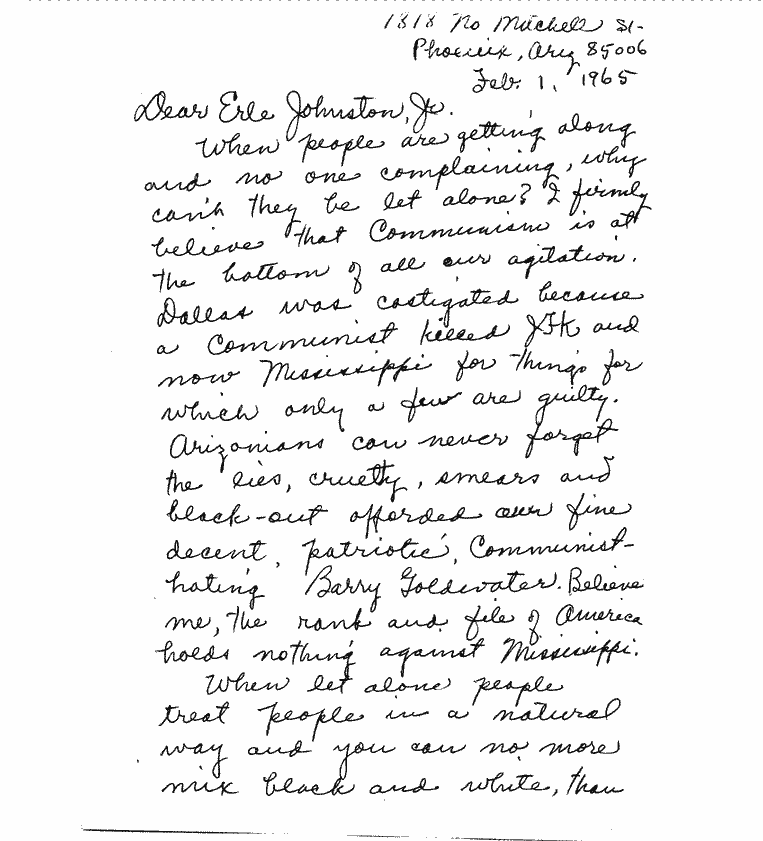 1818 No Mitchell St-
Phoenix, Ariz 85006
Feb. 1, 1965
Dear Erle Johnston, Jr.
When people are getting along
and no one complaining, why
can't they be let alone? I firmly
believe that Communism is at
the bottom of all our agitation.
Dallas was castigated because
a Communist killed JFK and
now Mississippi for things for
which only a few are guilty.
Arizonians can never forget
the lies, cruelty, smears and
black-out afforded our fine
decent, patriotic, Communist-
hating Barry Goldwater. Believe
me, the rank and file of America
holds nothing against Mississippi.
When let alone people
treat people in a natural
way and you can no more
mix black and white, than